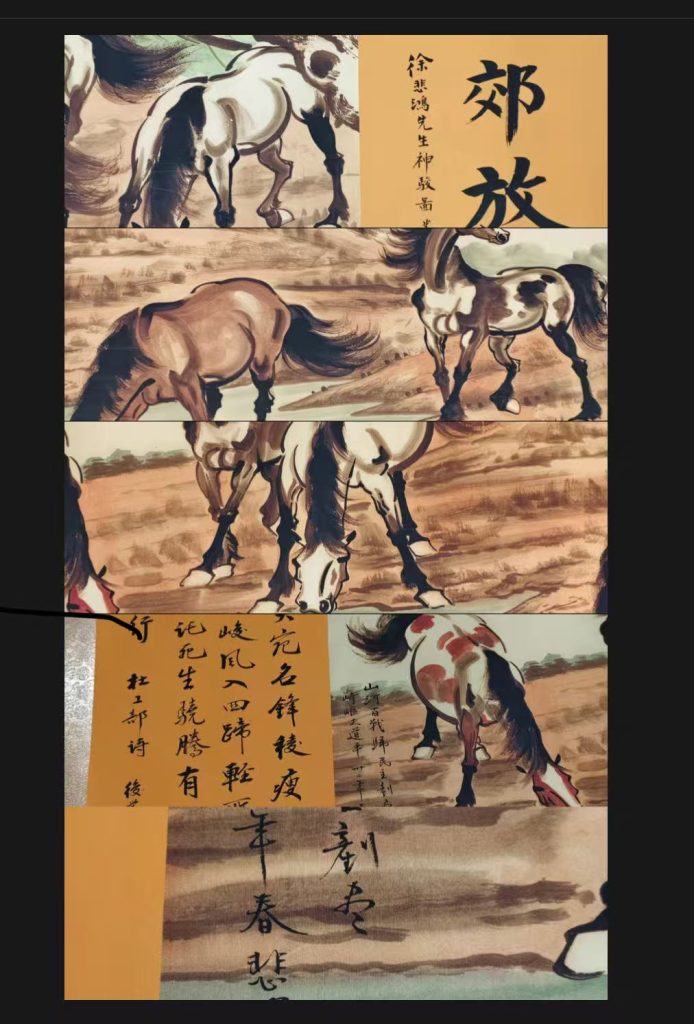 郊放
徐悲鴻先生神駿圖
宛名鋒稜瘦
峻風入四蹄輕
託死生驍騰有
行 杜工部詩 後
山河百戰歸民主剷
崎嶇大道平
剷盡
年春悲